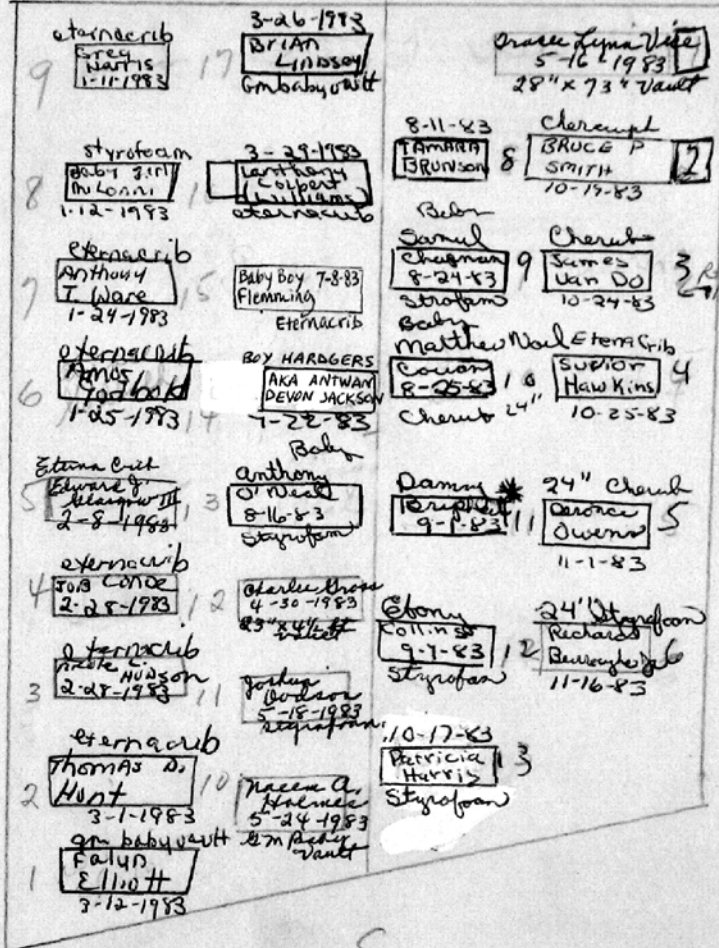 eternacrib
9
Greg
Harris
1-11-1983
styrofoam
8
Baby girl
1-12-1983
eternacrib
7
Anthony
T. Ware
1-24-1983
eternacrib
6
Amos
Godbold
1-25-1983
Eterna Crib
5
Edward J.
Glasgow III
2-8-1983
eternacrib
4
JOB CONDE
2-28-1983
eternacrib
3
Nicole C.
HUDSON
2-28-1983
eternacrib
2
Thomas D.
Hunt
3-1-1983
gm baby vault
1
Falyn
Elliott
3-12-1983
3-26-1983
17
Brian
Lindsey
Gm baby vault
3-29-1983
Colbert
(Williams)
eternacrib
15
Baby Boy 7-8-83
Flemming
Eternacrib
BOY HARDGERS
AKA ANTWAN
DEVON JACKSON
14
7-22-83
Baby
Anthony
13
O'Neal
8-16-83
Styrofam
12
Charlie Gross
4-30-1983
11
Joshua
Dodson
5-18-1983
styrofoam
10
Naeem A.
Holmes
5-24-1983
G M Baby
Vault
Lynn Vise
5-16-1983
1
28" x 73" Vault
8-11-83
TAMARA
BRUNSON
8
Baby
Samul
Chapman
8-24-83
9
Strofam
Baby
Matthew Noel
Cowan
8-25-83
10
Cherub 24"
Danny *
9-1-83
11
Ebony
Collins
9-7-83
12
Styrofam
10-17-83
Patricia
Harris
13
Styrofoam
BRUCE P
SMITH
2
10-19-83
Cherub
James
Van Do
3
10-24-83
Eterna Crib
Hawkins
4
10-25-83
24" Cherub
Owens
5
11-1-83
24" Styrofoam
Richard
6
11-16-83